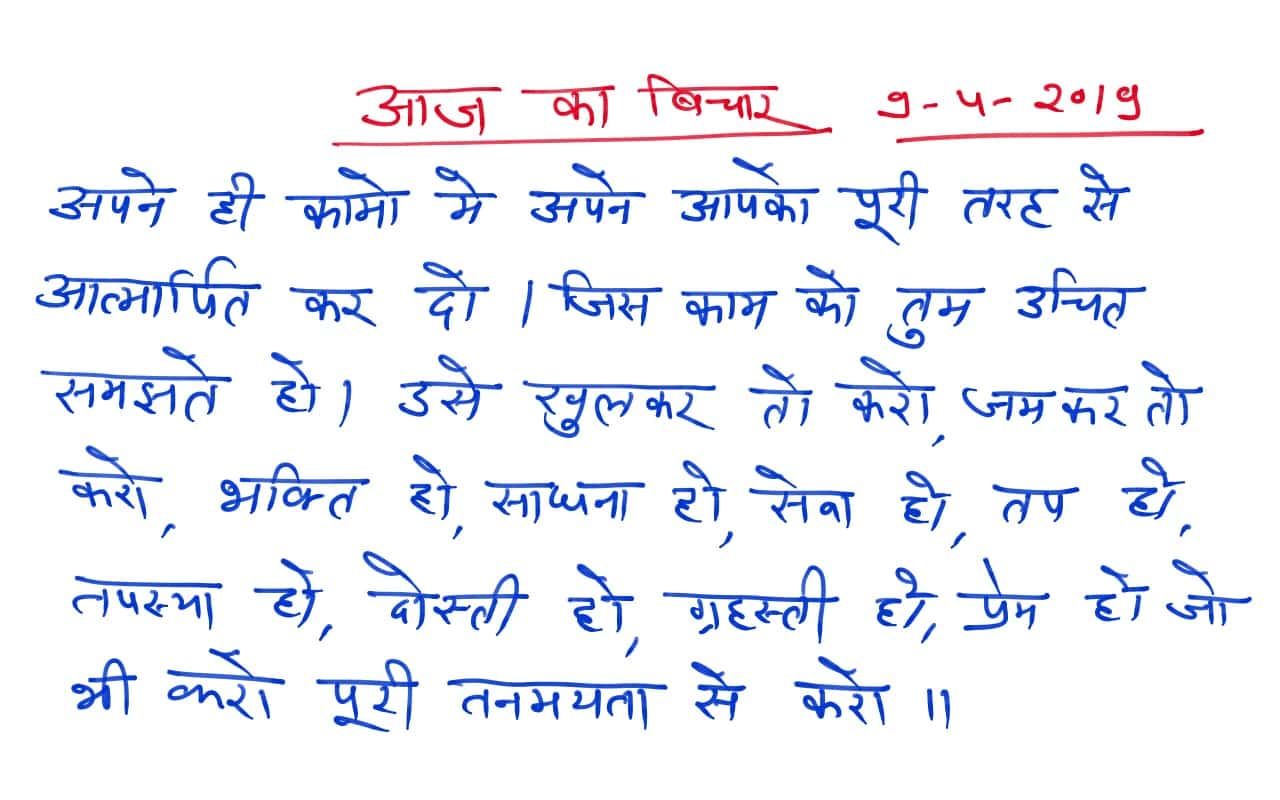 आज का बिचार 9-५-२०१९
अपने ही कामो मे अपने आपको पूरी तरह से
आत्मार्पित कर दो । जिस काम को तुम उचित
समझते हो। उसे खुलकर तो करो, जमकर तो
करो, भक्ति हो, साधना हो, सेवा हो, तप हो,
तपस्या हो, दोस्ती हो, ग्रहस्ती हो, प्रेम हो जो
भी करो पूरी तनमयता से करो ॥